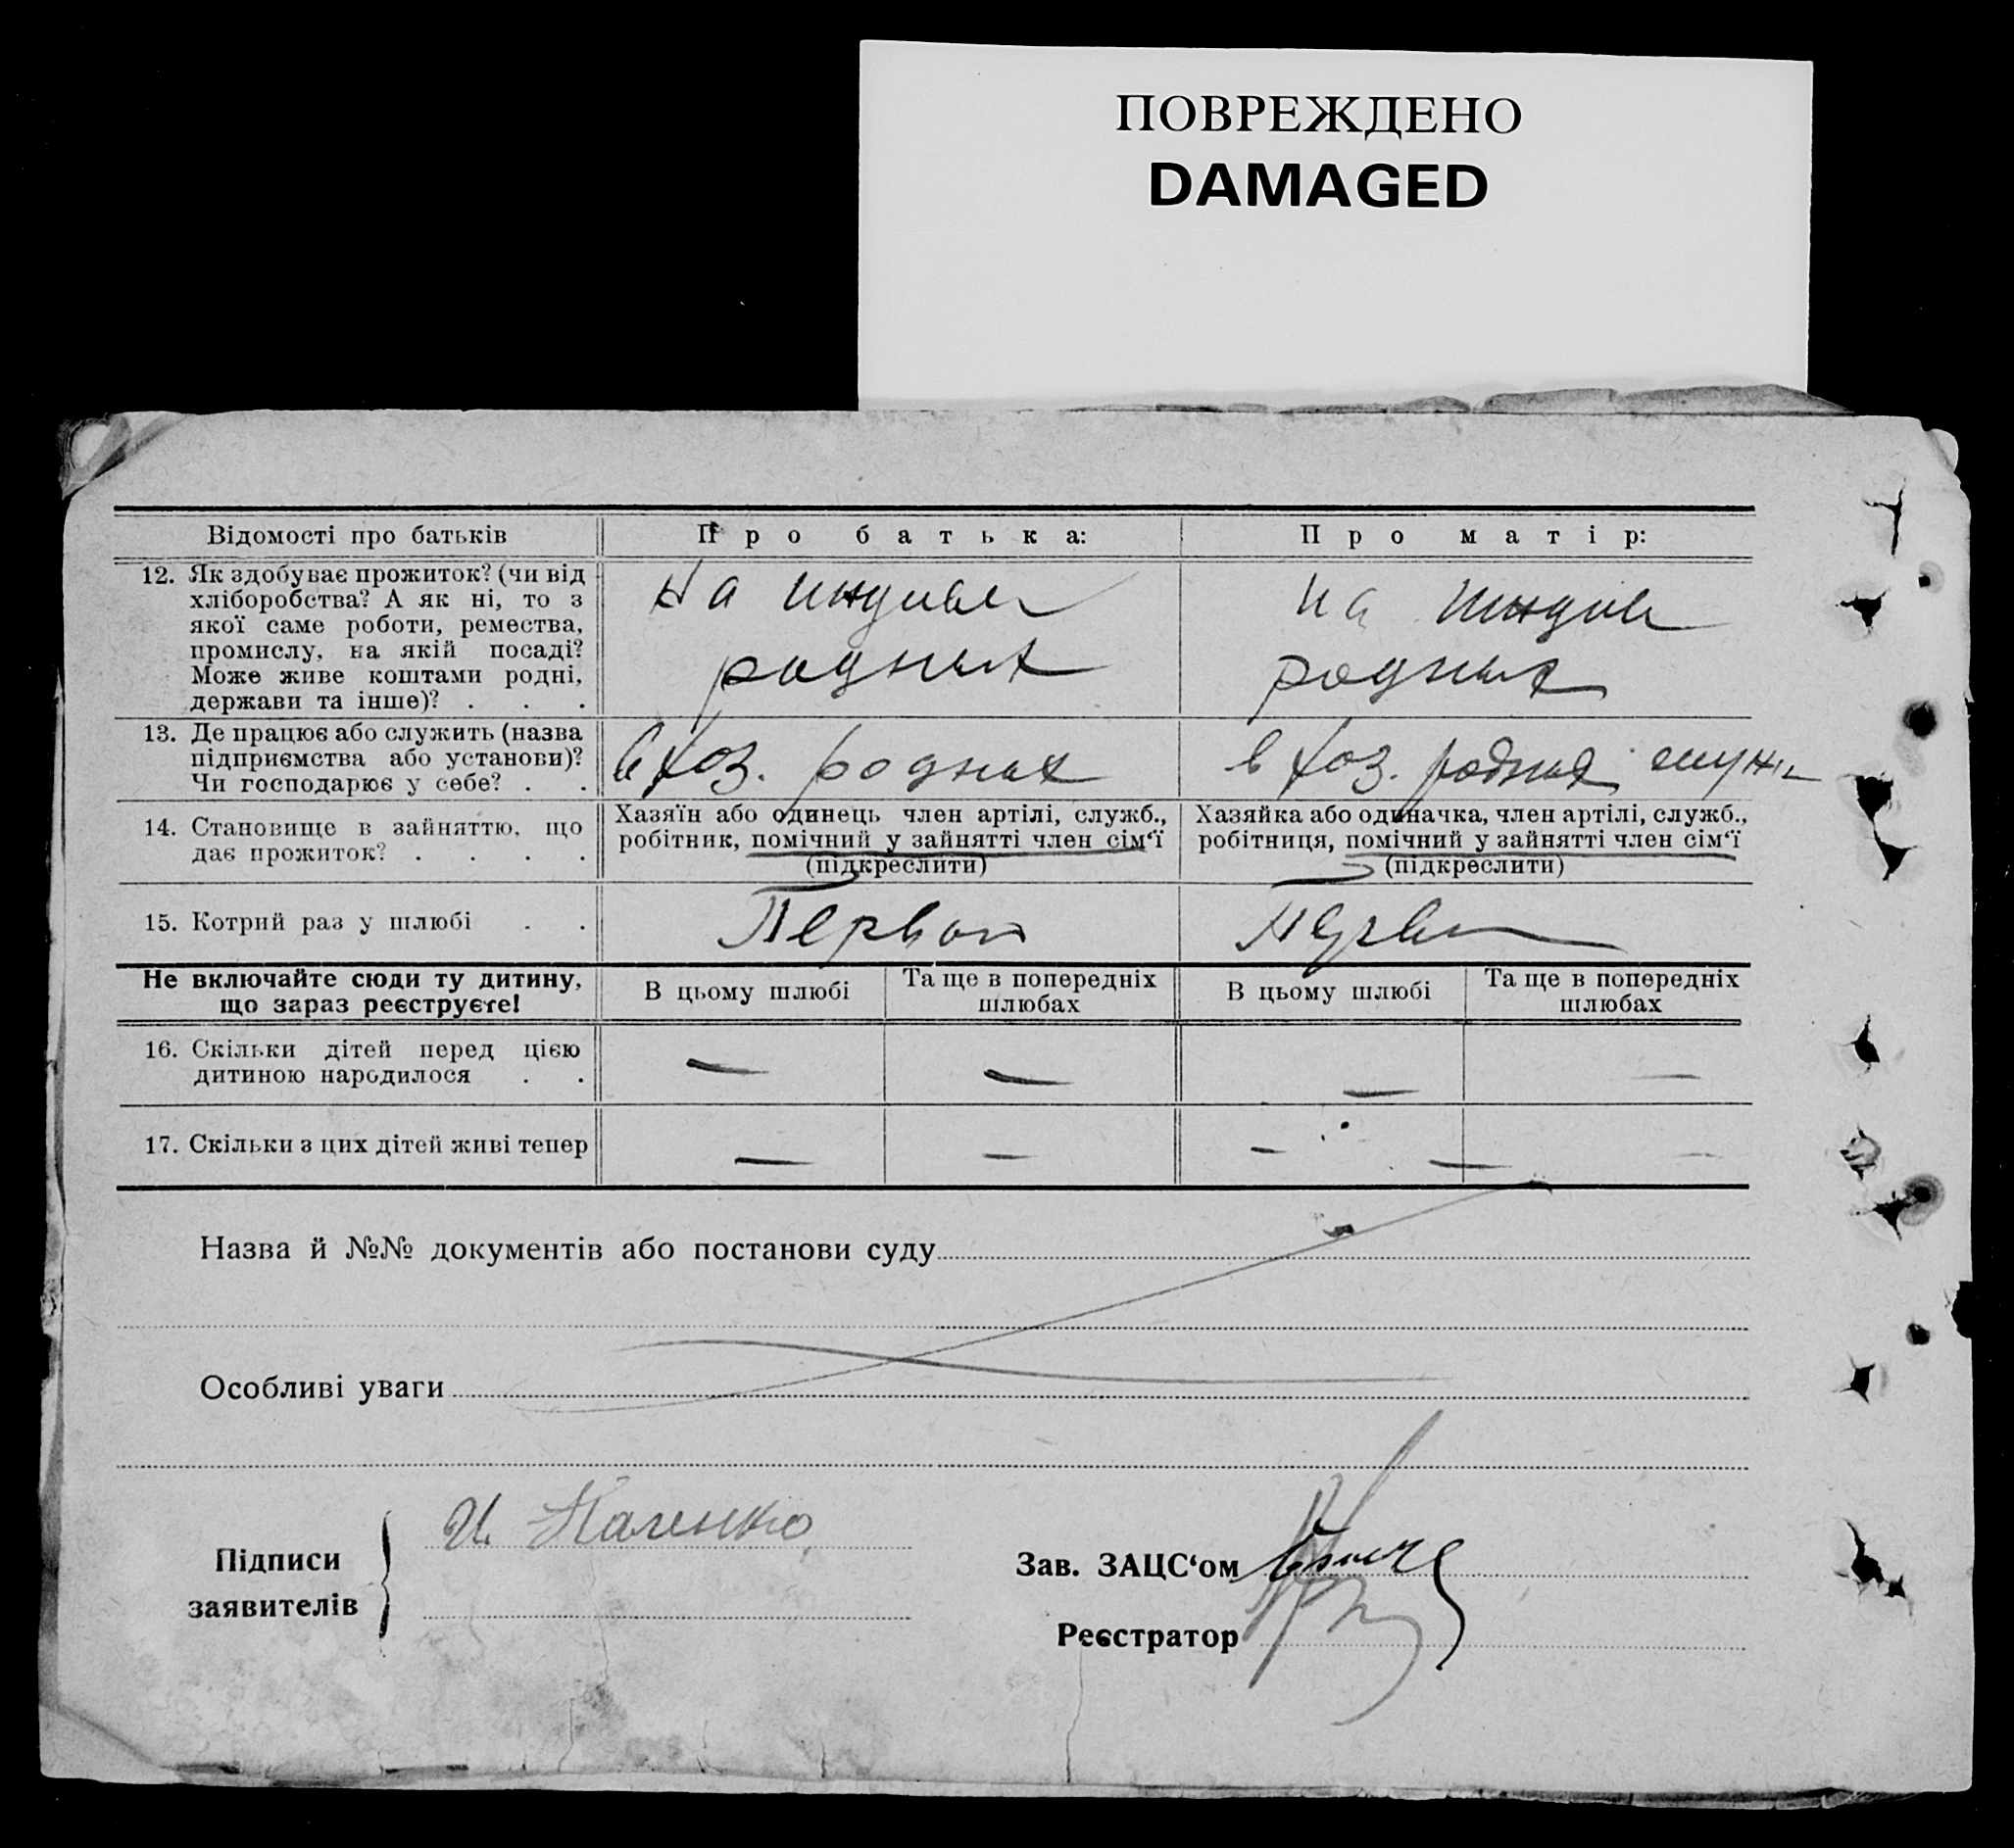 ПОВРЕЖДЕНО
DAMAGED
Відомості про батьків
Про батька:
Про матір:
12. Як здобуває прожиток? (чи від
хліборобства? А як ні, то з
якої саме роботи, ремества,
промислу, на якій посаді?
Може живе коштами родні,
держави та інше)? . . .
На
родных
на
родных
13. Де працює або служить (назва
підприємства або установи)?
Чи господарює у себе? . .
в хоз. родных
в хоз. родных
14. Становище в зайняттю, що
дає прожиток? . . . .
Хазяїн або одинець член артілі, служб.,
робітник, помічний у зайнятті член сім‘ї
(підкреслити)
Хазяйка або одиначка, член артілі, служб.,
робітниця, помічний у зайнятті член сім‘ї
(підкреслити)
15. Котрий раз у шлюбі . .
Не включайте сюди ту дитину,
що зараз реєструєте!
В цьому шлюбі
Та ще в попередніх
шлюбах
В цьому шлюбі
Та ще в попередніх
шлюбах
16. Скільки дітей перед цією
дитиною народилося . .
— — — —
17. Скільки з цих дітей живі тепер
— — — — —
Назва й №№ документів або постанови суду
Особливі уваги
Підписи
заявителів
И.
Зав. ЗАЦС‘ом
Реєстратор